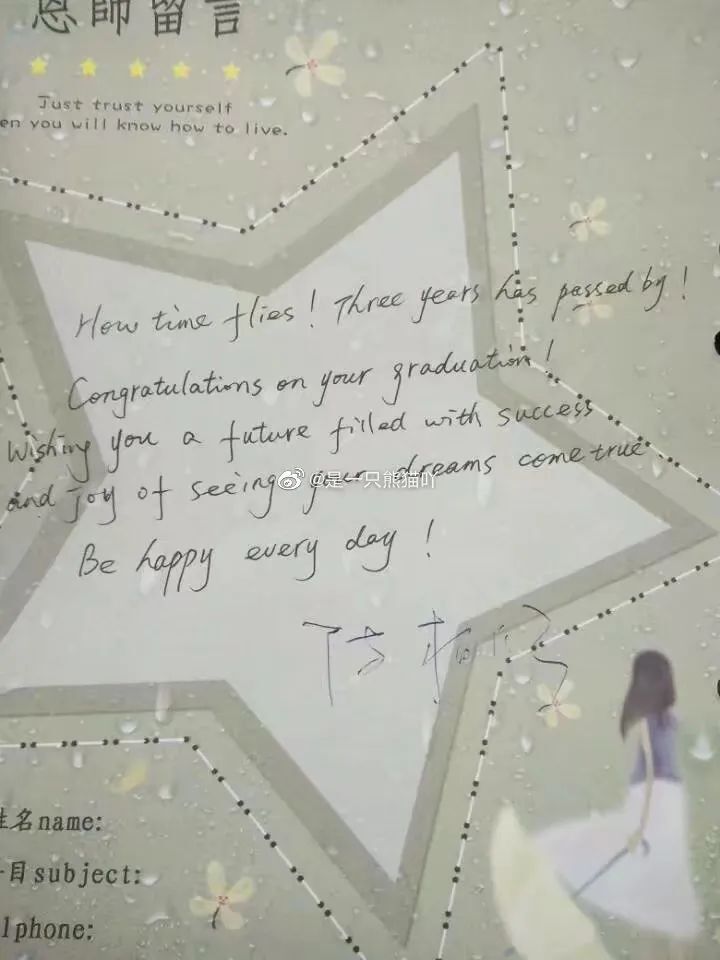 恩師留言
Just trust yourself
en you will know how to live.
How time flies! Three years has passed by!
Congratulations on your graduation!
Wishing you a future filled with success
and joy of seeing your dreams come true
@是一只熊猫吖
Be happy every day!
名name:
目subject:
lphone: